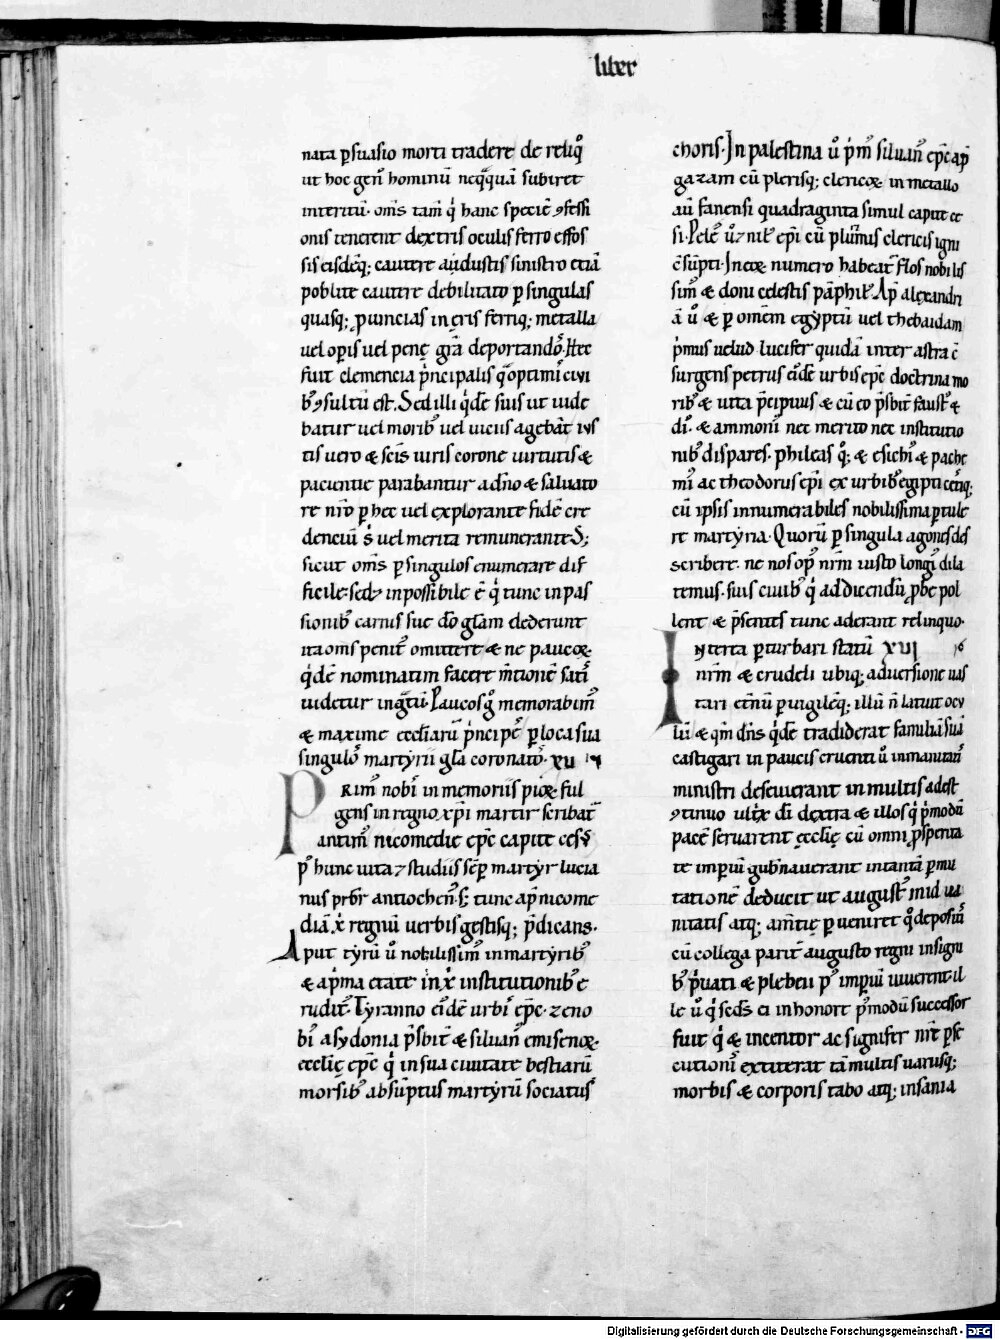 liber
nata p̱suasio morti tradere de reliq̊
ut hoc gen᷒ hominū neq̃quā subiret
interitū. om̅s tam̅ q̓ hanc speciē ꝯfessi
onis tenerent dextris oculis ferro effos
sis eisdēq; cautere adustis sinistro etiā
poblite cautere debilitato ꝑ singulas
quasq; ꝓuincias in eris ferriq; metalla
uel oꝑis uel penę gr̅a deportandos. Hec
fuit clemencia p̓ncipalis q̃ optimi ciui
b᷒ ꝯsultū est. Sed illi q̓de suis ut uide
batur uel morib᷒ uel uiciis agebāt ius
tis uero & sc̅is uiris corone uirtutis &
pacientie parabantur a dn̅o & saluato
re nr̅o ꝑ hec uel explorante fidē cre
denciū s̓ uel merita remunerante. S;
sicut om̅s ꝑ singulos enumerare dif
ficile. sed & inpossibile ē q̓ tunc in pas
sionib᷒ carnis sue dō gl̅am dederunt
ita om̅s penit᷒ omittere & ne paucoꝝ
q̓de nominatim facere m̅tionē sati᷒
uidetur ingtū. Paucos g̊ memorabim᷒
& maxime eccl̅iarū p̓ncipes ꝑ loca sua
singulos martyrii gl̅a coronatos. XV
Prim᷒ nobis in memoriis pioꝝ ful
gens in regno xp̅i martir scribat᷑
antim᷒ nicomedie ep̅c capite cesus
p᷒ hunc uita & studiis sēp martyr lucia
nus prb̅r antiochen᷒ s; tunc ap̅ nicome
diā x̅ regnū uerbis gestisq; p̅dicans.
Aput tyrū ů nobilissim᷒ in martyrib᷒
& a p̓ma etate in x̅ institutionib᷒ e
rudit᷒. Tyranno eide urbis ep̅c. zeno
bi᷒ a sydonia p̅sbit̅ & siluan᷒ emisenoꝝ.
eccl̅ię ep̅c q̓ in sua ciuitate bestiarū
morsib᷒ absūptus martyrū sociatus
choris. In palestina ů p̓m᷒ siluan᷒ ep̅c ap̅
gazam cū plerisq; clericoꝝ in metallo
aū fanensi quadraginta simul capite ce
si. Pele᷒ ů & nil᷒ ep̅i cū plurimis clericis igni
ēsūpti. In eoꝝ numero habeat᷑ flos nobilis
sim᷒ & domi celestis pāphil᷒. Ap̅ alexandri
ā ů & ꝑ omnem egyptū uel thebaidam
p̓mus uelud lucifer quidā inter astra ē
surgens petrus eide urbis ep̅c doctrina mo
rib᷒ & uita p̅cipuus & cū eo p̅sbit̅ faust᷒ &
di᷒. & ammoni᷒ nec merito nec institutio
nib᷒ dispares. phileas q̊; & esichi᷒ & pache
mi᷒ ac theodorus ep̅i ex urbib᷒ egipti cet̅iq;
cū ipsis innumerabiles nobilissima ꝑtule
re martyria. Quorū ꝑ singula agones des
scribere. ne nos op᷒ nr̅m iusto longi᷒ dila
temus. suis ciuib᷒ q̓ ad dicendū ꝓbe pol
lent & p̅sentes tunc aderant relinquo.
Interea ꝑturbari statū XVI
nr̅m & crudeli ubiq; aduersione uas
tari etn̅ū ꝑuigilēq; illū n̅ latuit ocu
lū & qm̅ dn̅s q̓de tradiderat familiā suā
castigari in paucis cruenti ů inmanitatis
ministri deseuierant in multis adest
ꝯtinuo ultrix di̅ dextra & illos q̓ p̓modū
pacē seruarent ęcclię cū omni ꝓsperita
te imperiū gub̅nauerant in tantā ꝑmu
tationē deducit ut august᷒ in id ua
nitatis atq; am̅tię ꝑueniret q̊ deposito
cū collega parit̅ augusto regni insigni
b᷒ p̓uati & plebeii p᷒ imperiū uiuerent. il
le ů q̓ sed̅s ei in honore p̓modū successor
fuit q̓ & incentor ac signifer nr̅e ꝑse
cutionis extiterat tā multis uariisq;
morbis & corporis tabo atq; insania